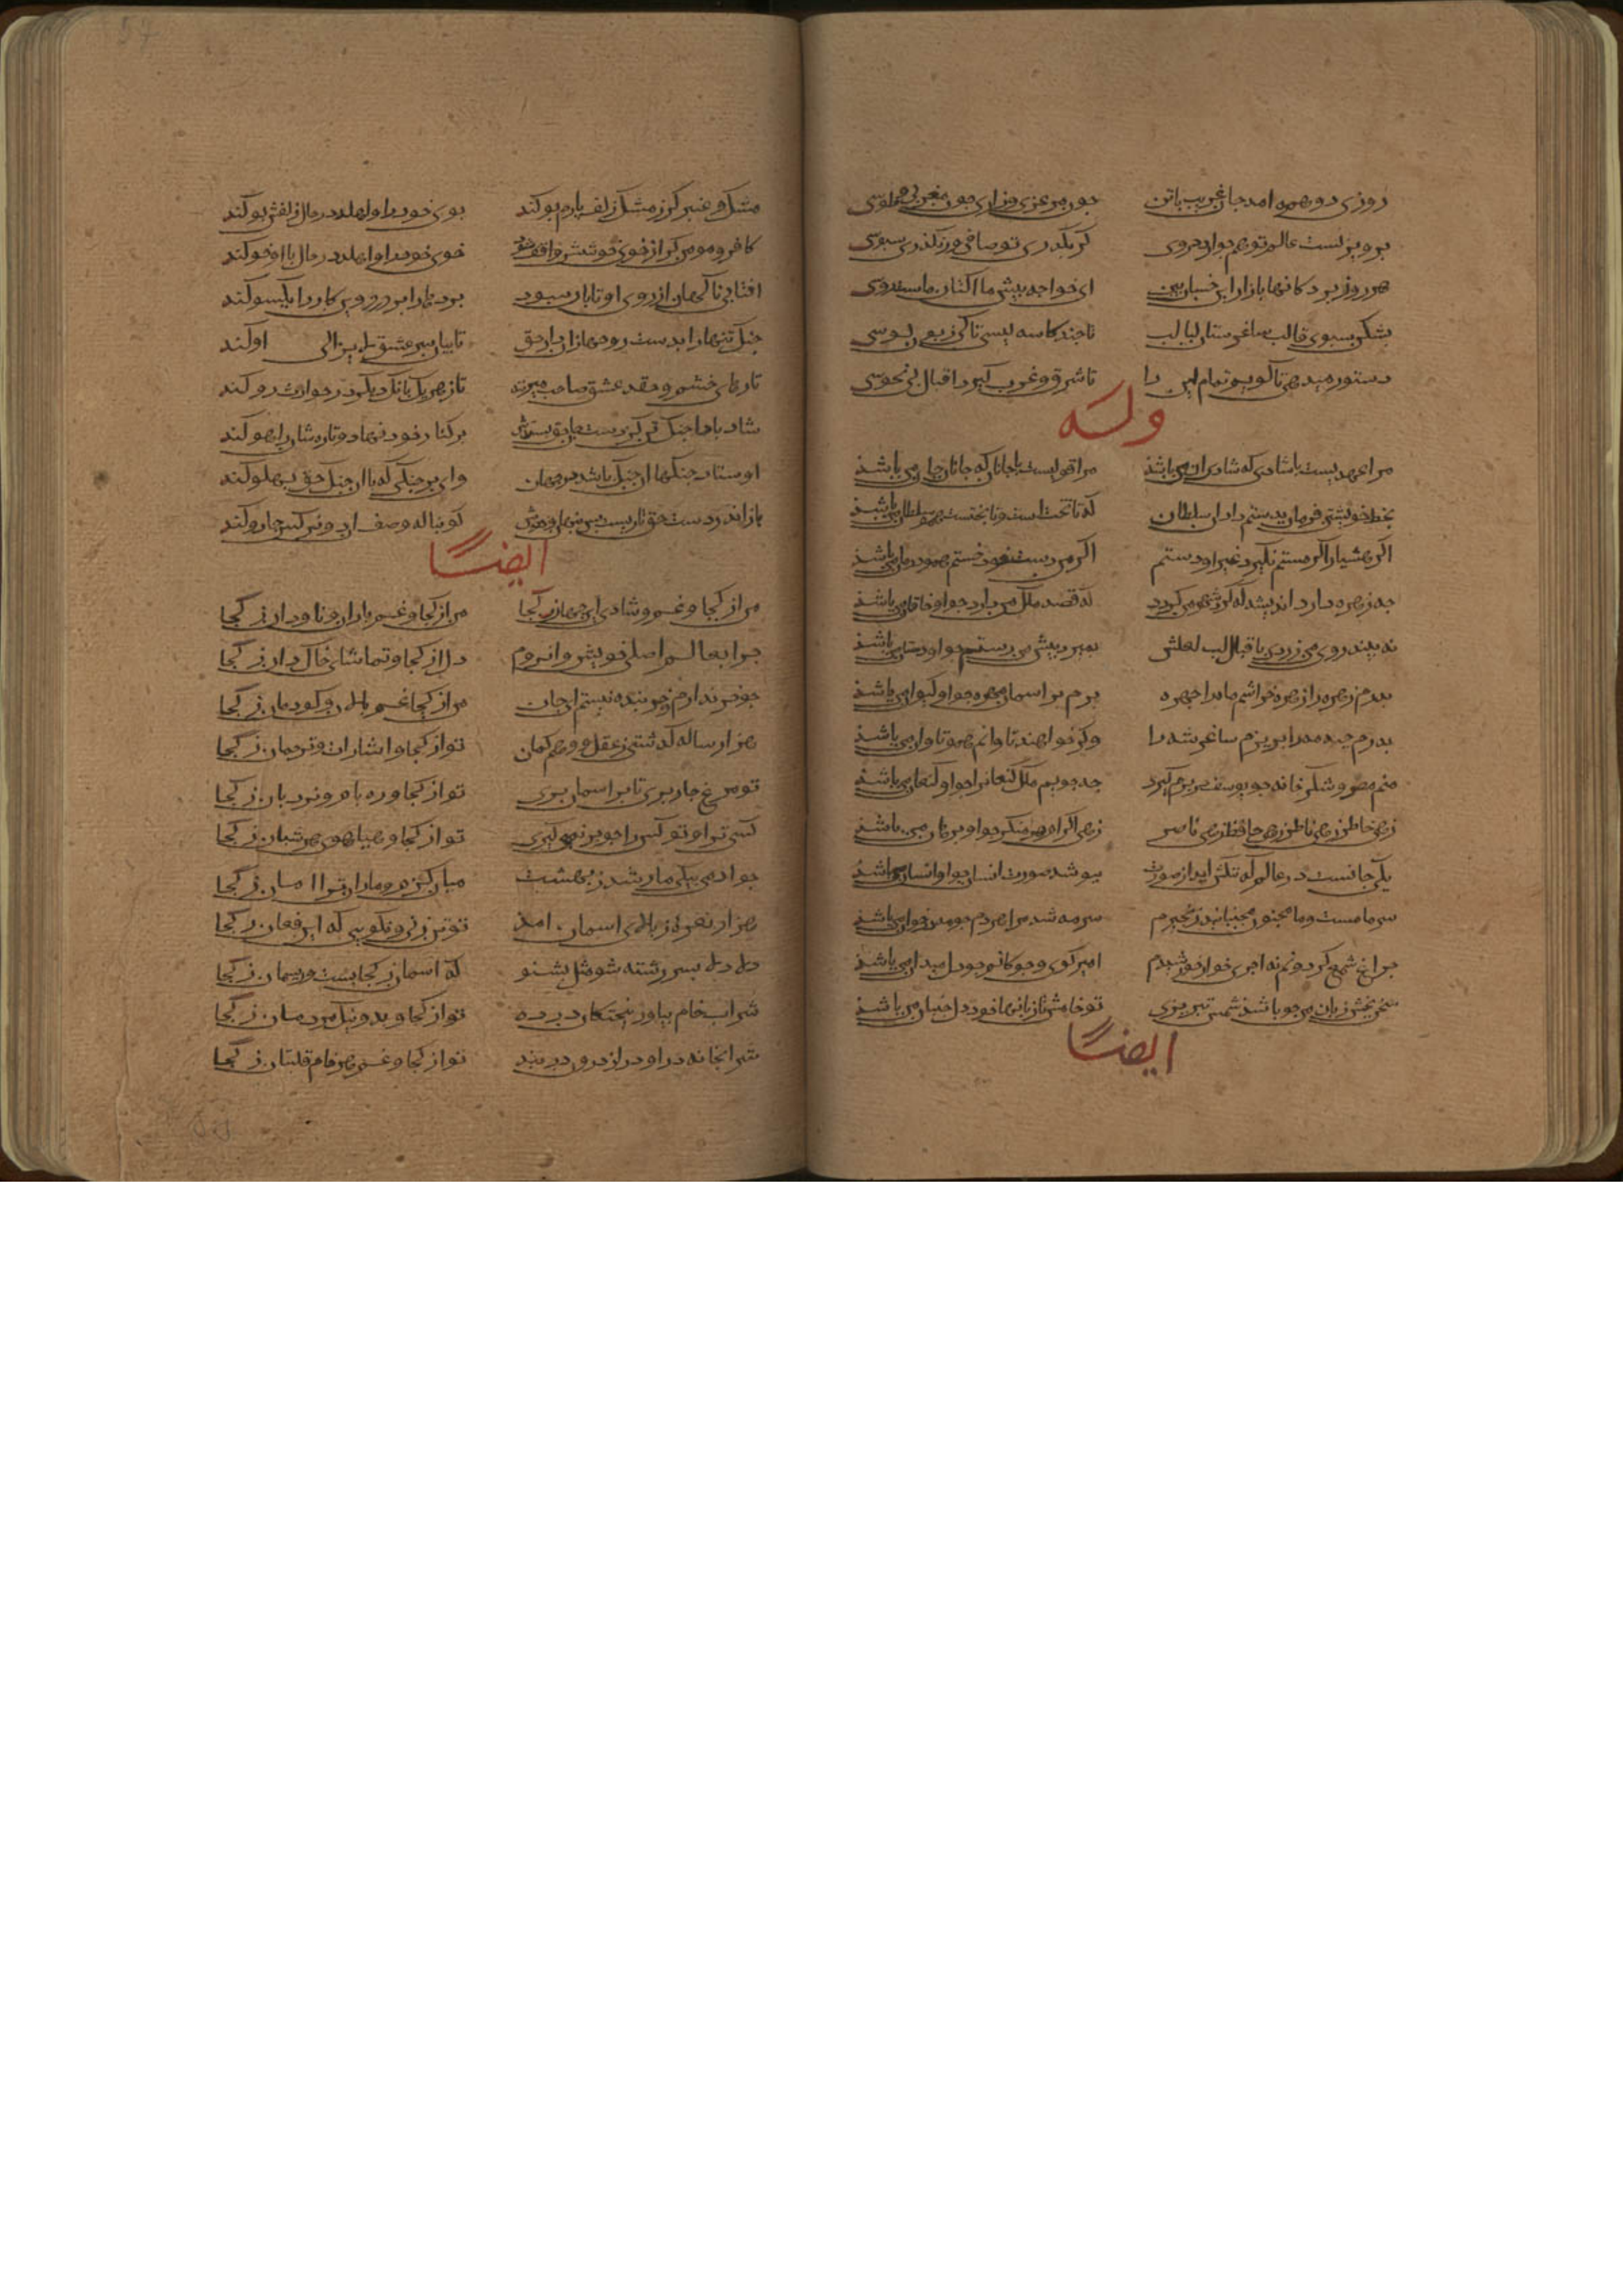 روزی دو همره امد جان غریب باتن
چون مرغزی ورازی چون مغربی و طوسی
برو بر لست عالم توهم جوابروی
کر بگذری تو صافی ورنگذری سبوسی
هر روز بر دکانها بازار این خسان بین
ای خواجه بیش ما
بشکن سبوی قالب ساغر ستان لبالب
تا جند کاسه لیسی تا کی زبون لوسی
دستور میدهی تا کویم تمام این را
تا شرق و غرب کیرد اقبال بی نحوسی
وله
مرا عهدیست با شادی که شادی ان من باشد
مرا قولیست با جانان که جانان جان من باشد
بخط خویشتن فرمان بدستم داد ان سلطان
که تا تختست و تا بختست او سلطان من باشد
اکر هشیار اکر مستم نکیرد غیر او دستم
اکر من دست خود خستم همو درمان من باشد
چه زهره دارد اندیشه که کرد شهر من کردد
که قصد ملک من دارد چو او خاقان من باشد
نه بیند روی من زردی باقبال لب لعلش
بمیرد پیش من رستم چو او دستان من باشد
بدرم زهره زهره خراشم ماه را چهره
برم بر اسمان مهره چو او کیوان من باشد
بدرم جبه مه را بریزم ساغر شه را
وکر خواهند تاوانم همو تاوان من باشد
منم مصر و شکر خانه چو یوسف در برم کیرد
چه جویم ملک کنعان را چو او کنعان من باشد
زهی حاضر زهی ناظر زهی حافظ زهی ناصر
زهی الزام هر منکر چو او برهان من باشد
یکی جانست در عالم که ننکش اید از صورت
بپوشد صورت انسان چو او انسان من باشد
سر ما مست و ما مجنون مجنبانید زنجیرم
مرا هر دم چو مه خوان من باشد
چراغ شمع کردونم نه اجری خوار خورشیدم
امیر کوی و چوکانم چو دل میدان من باشد
سخن بخش زبان من چو باشد شمس تبریزی
تو خامش تا زبانها خود چو دل جنبان من باشد
ایضا
مشک و عنبر کر ز مشک زلف یارم بو کند
بوی خود را واهلد در حال و زلفش بو کند
کافر و مومن کر از خوی خوشش واقف شوند
خوی خود را واهلد در حال با او خو کند
افتابی ناکهان از روی او تابان شود
پرده ها را بر درد وین کار را یکسو کند
چنک تنها را بدست روحها زان داد حق
تا بیان سر عشق لایزالی او کند
تارهای خشم و حقد عشق صاحب میزند
تا ز هر یک بانک دیکر در حوادث رو کند
شاد با چنک تن کز دست جان حق بستدش
بر کنار خود نهاد و تارهاشان را هو کند
اوستاد چنکها ان چنک باشد در جهان
وای بر چنکی که با ان چنک حق پهلو کند
باز اندر دست حق تاریست بس پنهان و خوش
کو بناله وصف ان دو نرکس جادو کند
ایضا
مرا از کجا و غم و شادی این جهان ز کجا
مرا از کجا و غم باران و ناودان ز کجا
چرا بعالم اصلی خویش وانروم
دل از کجا و تماشای خاکدان ز کجا
چو خر ندارم و خر بنده نیستم ای جان
من از کجا غم پالان و کودبان ز کجا
هزار ساله کذشتی ز عقل و وهم و کمان
تو از کجا و اشارات و ترجمان ز کجا
تو مرغ چار پری تا بر اسمان پری
تو از کجا و ره بام و نردبان ز کجا
کسی ترا و تو کس را چو بز نمی کیری
تو از کجا و هیاهوی هر شبان ز کجا
چو ادمی بیکی مار شد ز بهشت
میان کژدم و ماران ترا امان ز کجا
هزار نعره ز بالای اسمان امد
تو تن زنی و نکویی که این فغان ز کجا
دلا دلا بسر رشته شو مثل بشنو
که اسمان ز کجایست و ریسمان ز کجا
شراب خام بیاور بپختکان در ده
تو از کجا و بد و نیک مردمان ز کجا
شرابخانه درا و در از درون در بند
تو از کجا و غم هر خام قلتبان ز کجا